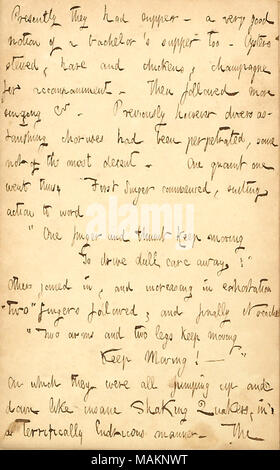 Presently they had supper — a very good
notion of a bachelor's supper too. Oysters
stewed, hare and chickens, champagne
for accompaniment. Then followed more
singing &c. Previously however divers as-
tonishing choruses had been perpetrated, some
not of the most decent. One quaint one
went thus, First Singer commenced, suiting
action to word
"One finger and thumb keep moving
To drive dull care away!"
Others joined in, and increasing in exhortation
"two" fingers followed; and finally
"Two arms and two legs keep moving
Keep Moving! — "
On which they were all jumping up and
down like insane Shaking Quakers, in
a terrifically ludicrous manner. The
alamy
Image ID: MAKNWT
www.alamy.com